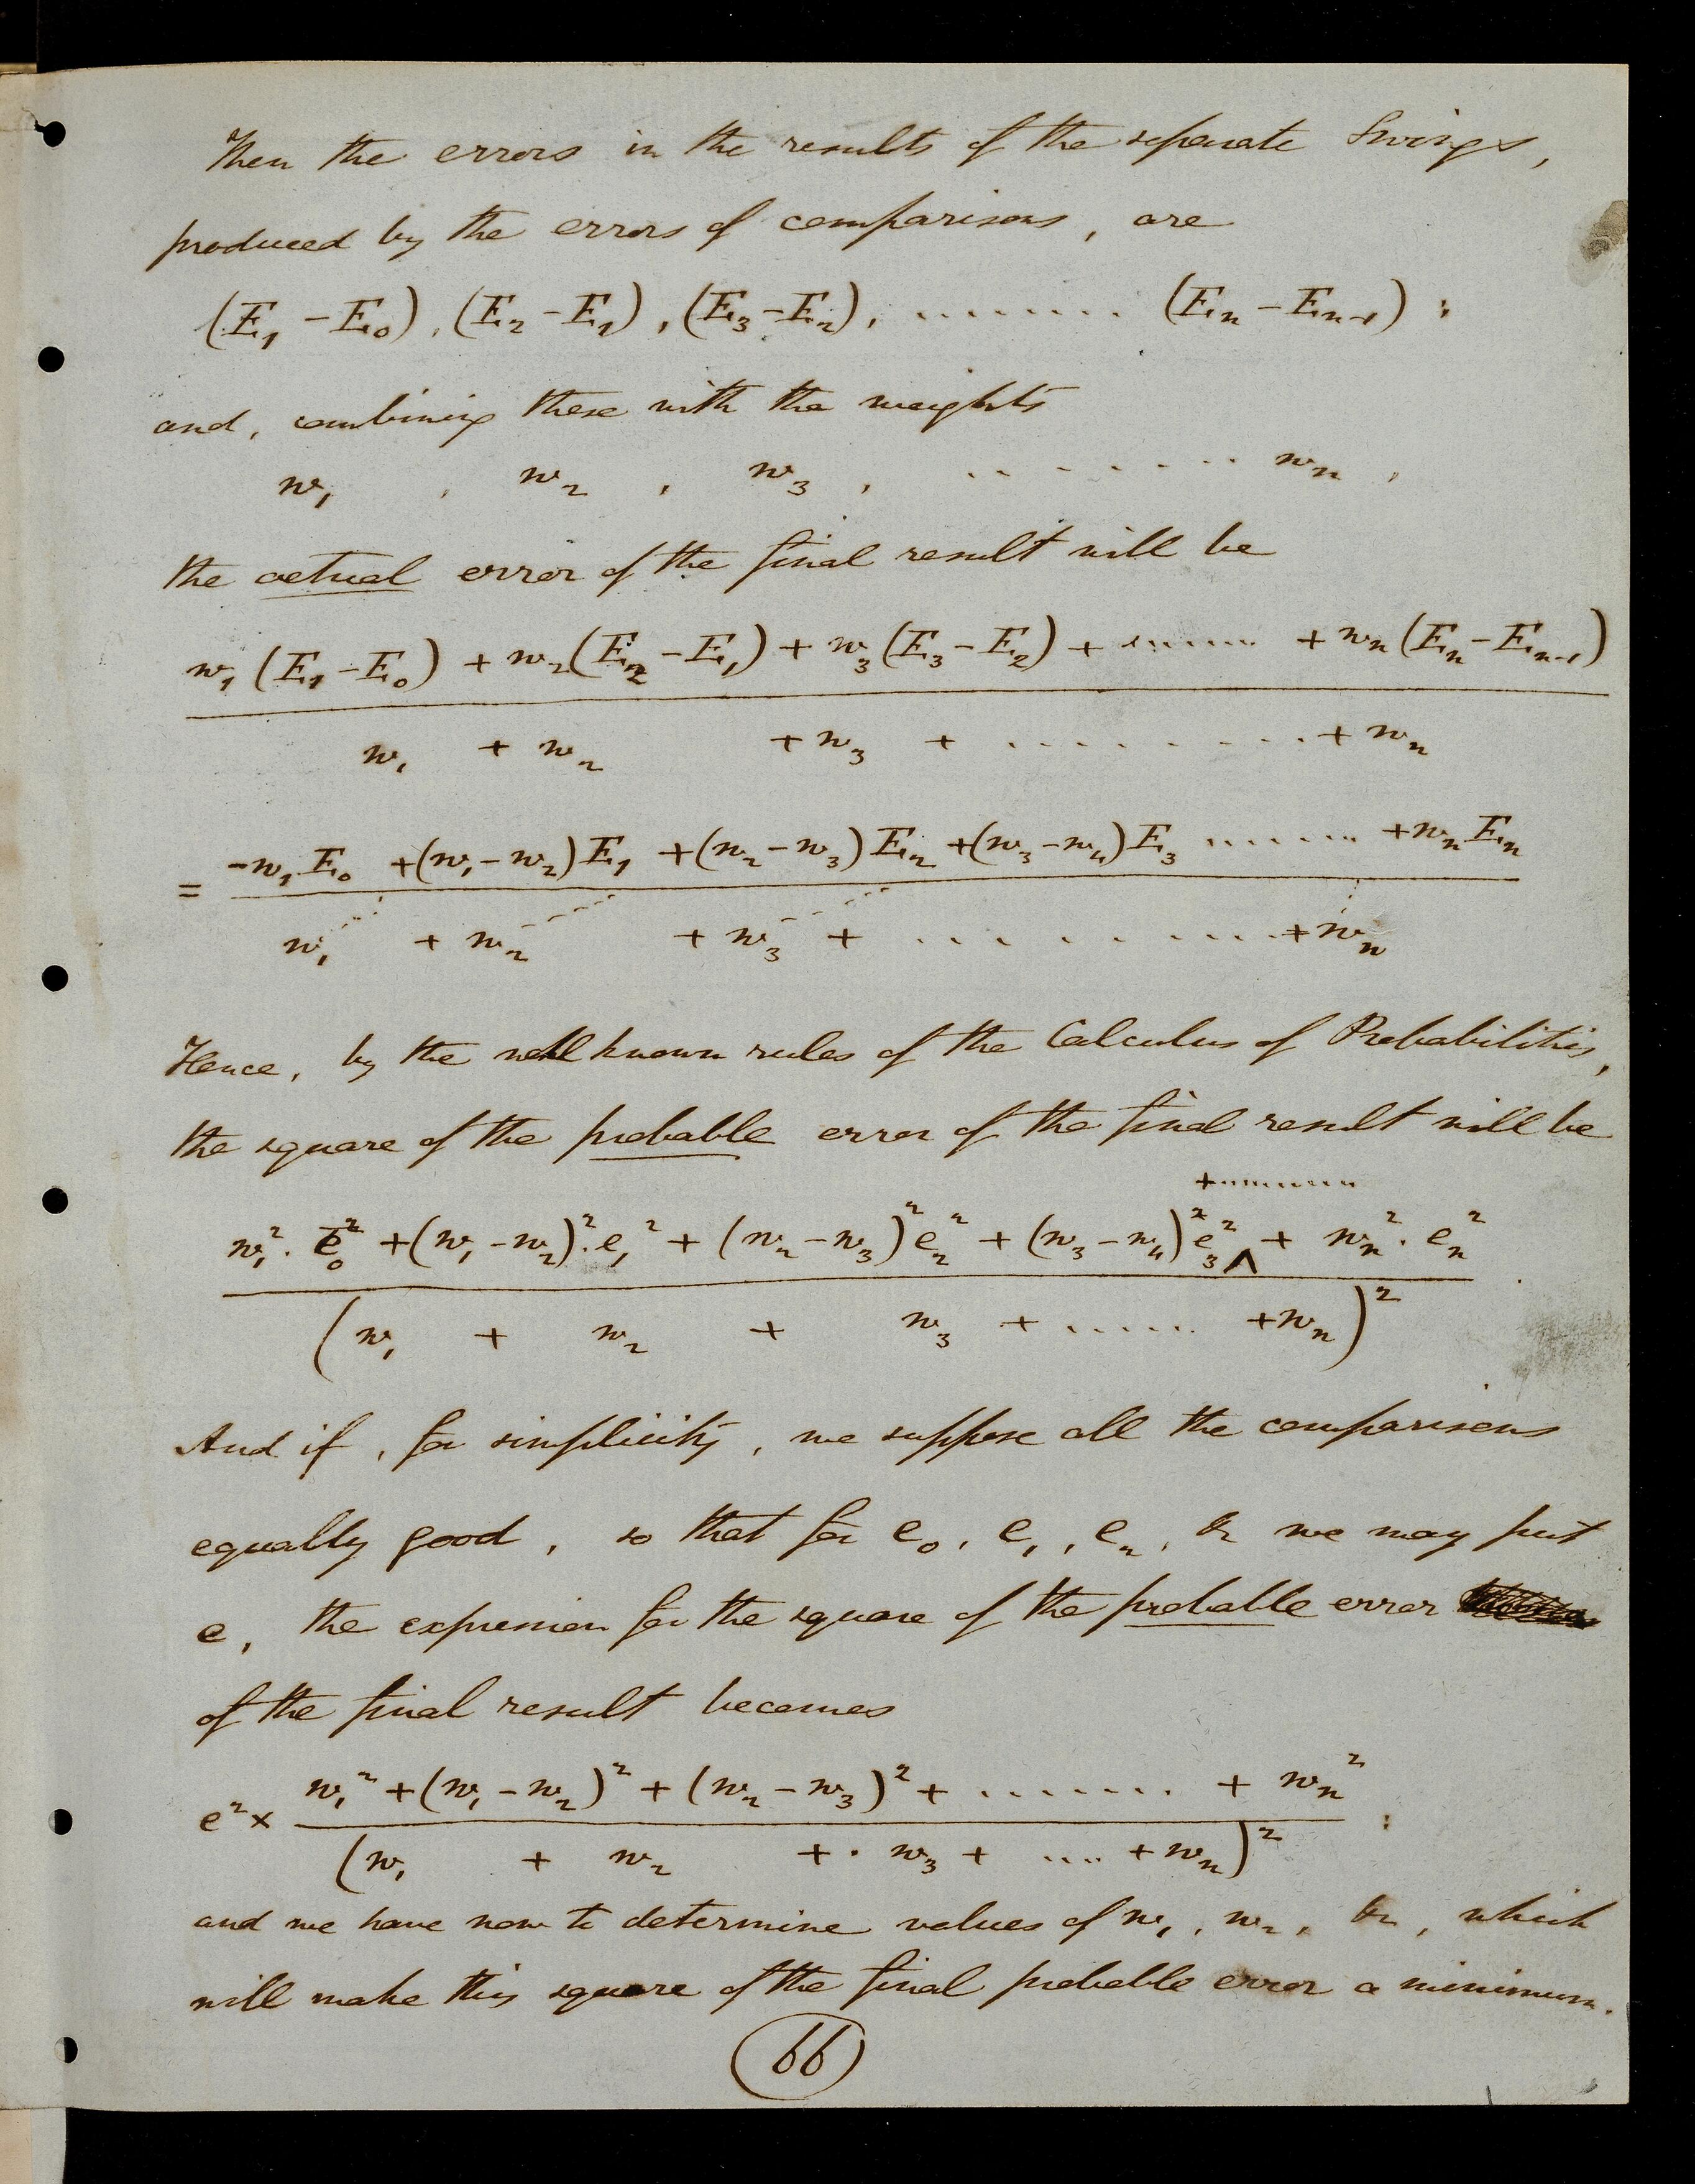 Then the errors in the results of the separate Swings,
produced by the errors of comparisons, are
(E₁ − E₀), (E₂ − E₁), (E₃ − E₂), ........ (Eₙ − Eₙ₋₁) :
and, combining these with the weights
w₁ , w₂ , w₃ , ......... wₙ ,
the actual error of the final result will be
w₁(E₁ − E₀) + w₂(E₂ − E₁) + w₃(E₃ − E₂) + ....... + wₙ(Eₙ − Eₙ₋₁)
w₁ + w₂ + w₃ + ......... + wₙ
= −w₁E₀ + (w₁ − w₂)E₁ + (w₂ − w₃)E₂ + (w₃ − w₄)E₃ ....... + wₙEₙ
w₁ + w₂ + w₃ + ......... + wₙ
Hence, by the well known rules of the Calculus of Probabilities,
the square of the probable error of the final result will be
+ ........
w₁². e₀² + (w₁ − w₂)². e₁² + (w₂ − w₃)² e₂² + (w₃ − w₄)² e₃² ∧ + wₙ². eₙ²
(w₁ + w₂ + w₃ + ...... + wₙ)²
And if, for simplicity, we suppose all the comparisons
equally good, so that for e₀, e₁, e₂, &c we may put
e, the expression for the square of the probable error
of the final result becomes
e² × w₁² + (w₁ − w₂)² + (w₂ − w₃)² + ........ + wₙ² :
(w₁ + w₂ + w₃ + .... + wₙ)²
and we have now to determine values of w₁, w₂, &c, which
will make this square of the final probable error a minimum.
66